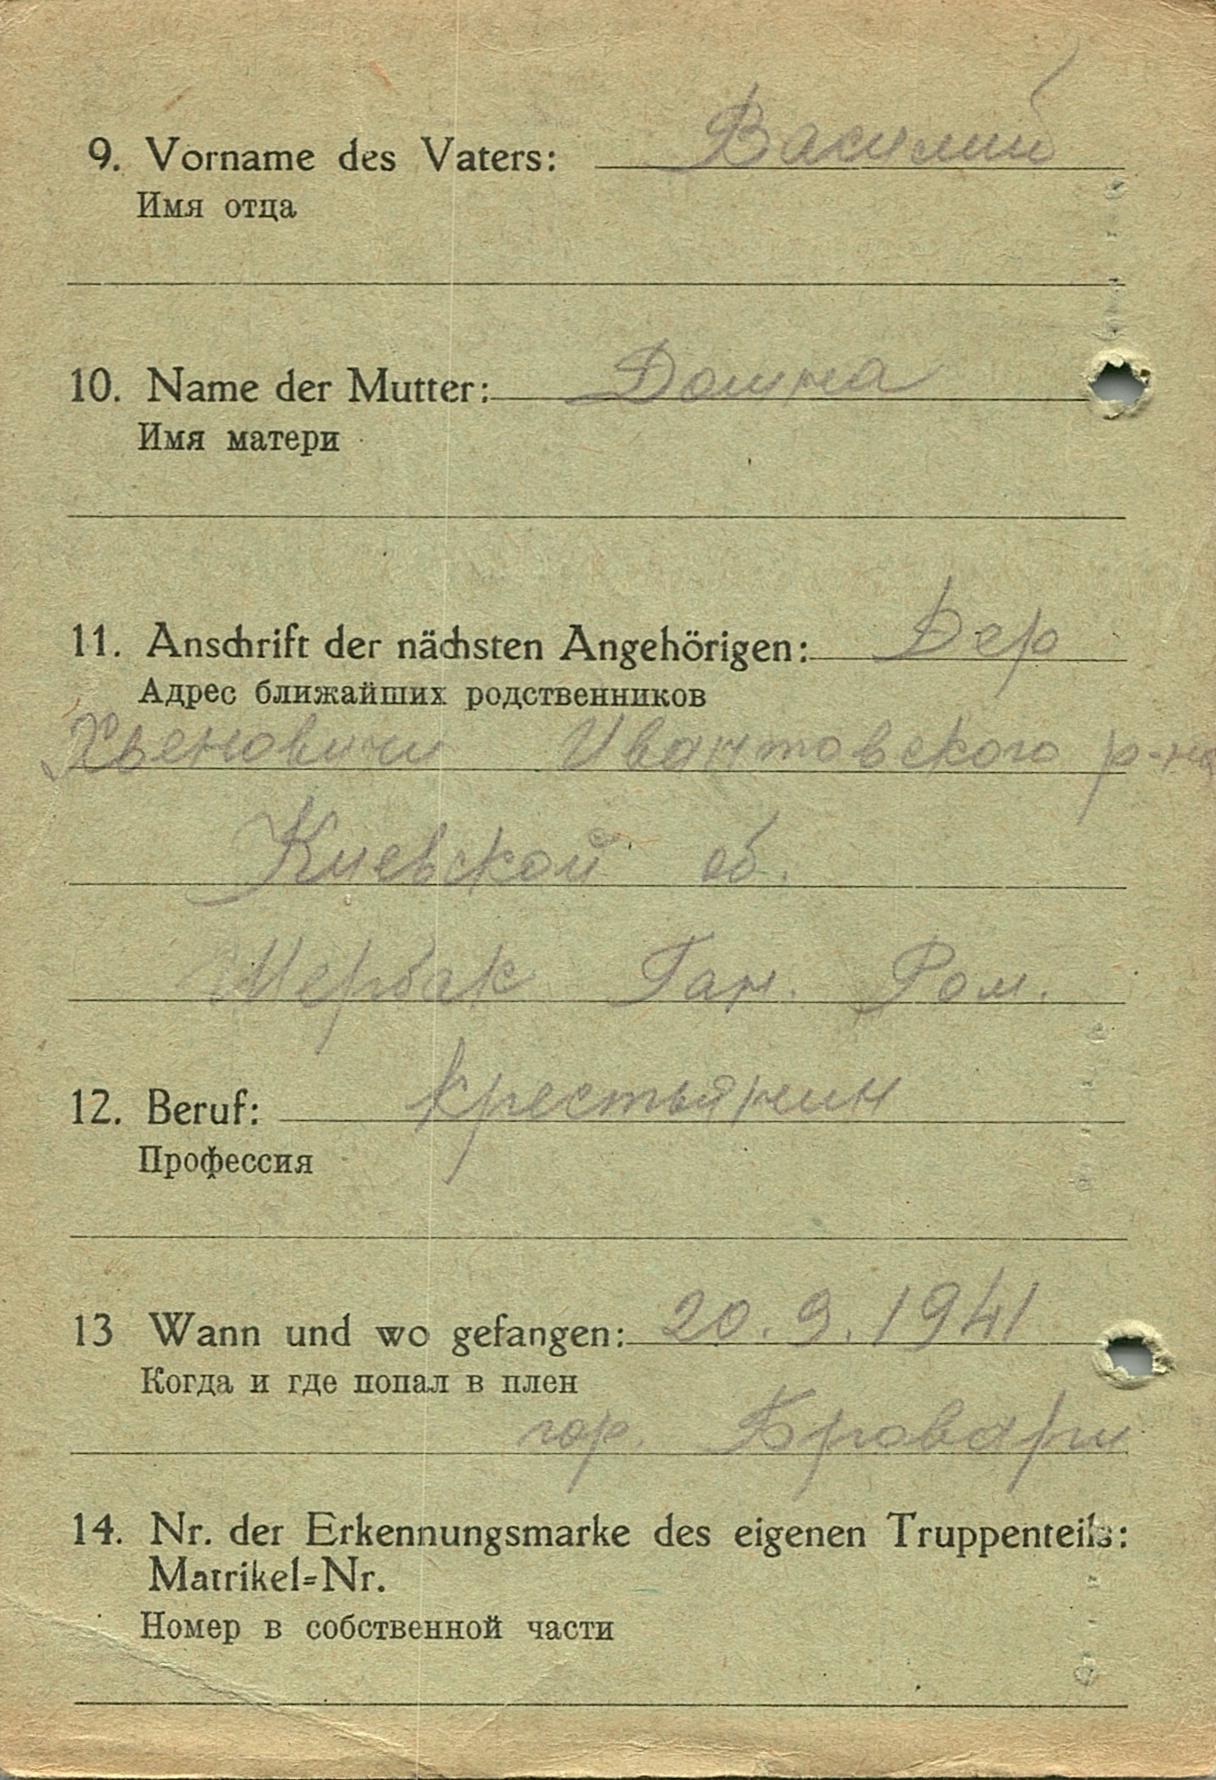 9. Vorname des Vaters: Василий
Имя отца
10. Name der Mutter: Домна
Имя матери
11. Anschrift der nächsten Angehörigen: Дер
Адрес ближайших родственников
р-на
Киевской об.
Ган. Ром.
12. Beruf: крестьянин
Профессия
13 Wann und wo gefangen: 20.9.1941
Когда и где попал в плен
гор. Бровари
14. Nr. der Erkennungsmarke des eigenen Truppenteils:
Matrikel=Nr.
Номер в собственной части